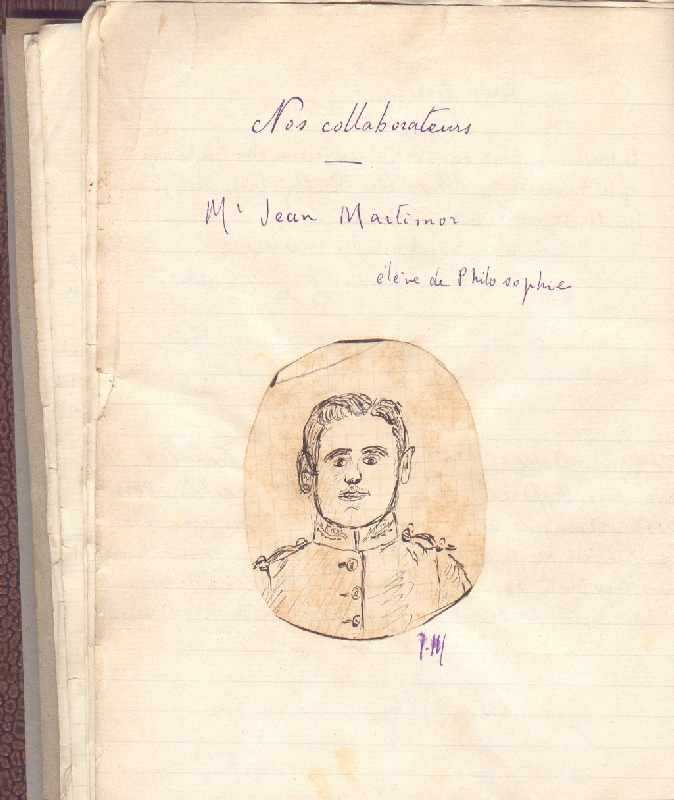 Nos collaborateurs
Mr Jean Martimor
élève de Philosophie
J.M